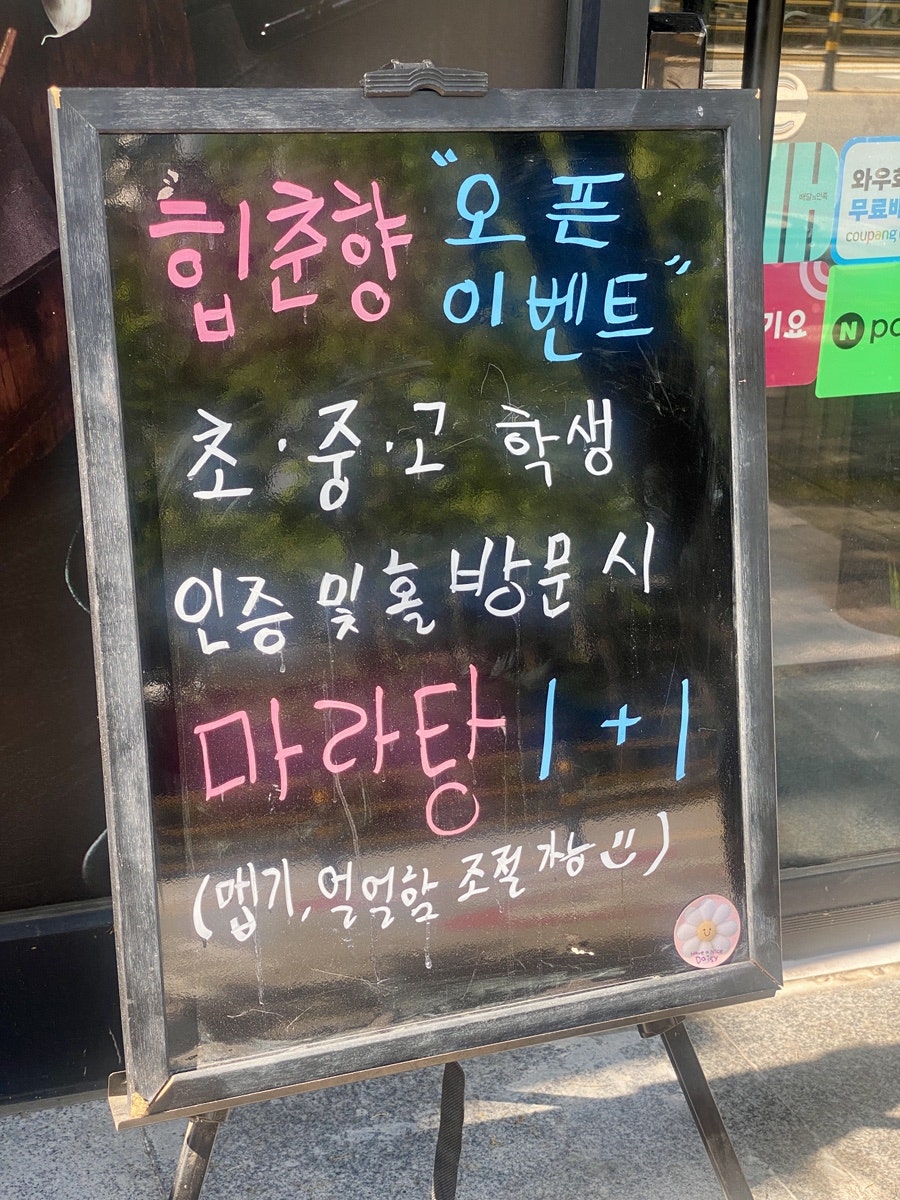 "힙춘향 "오픈
이벤트"
초·중·고 학생
인증 및 홀 방문 시
마라탕 1+1
(맵기, 얼얼함 조절 가능)
Have a nice
Daisy
배달의민족
와우회
무료배
coupang
기요
N